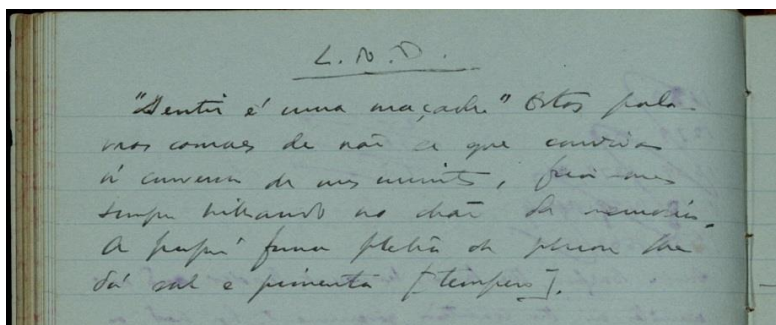 L. do D.
"Sentir é uma maçada." Estas pala-
vras casuaes de não sei que conviva
à conversa de uns minutos, ficou-me
sempre brilhando no chão da memoria.
A propria forma plebeia da phrase lhe
dá sal e pimenta [tempero].